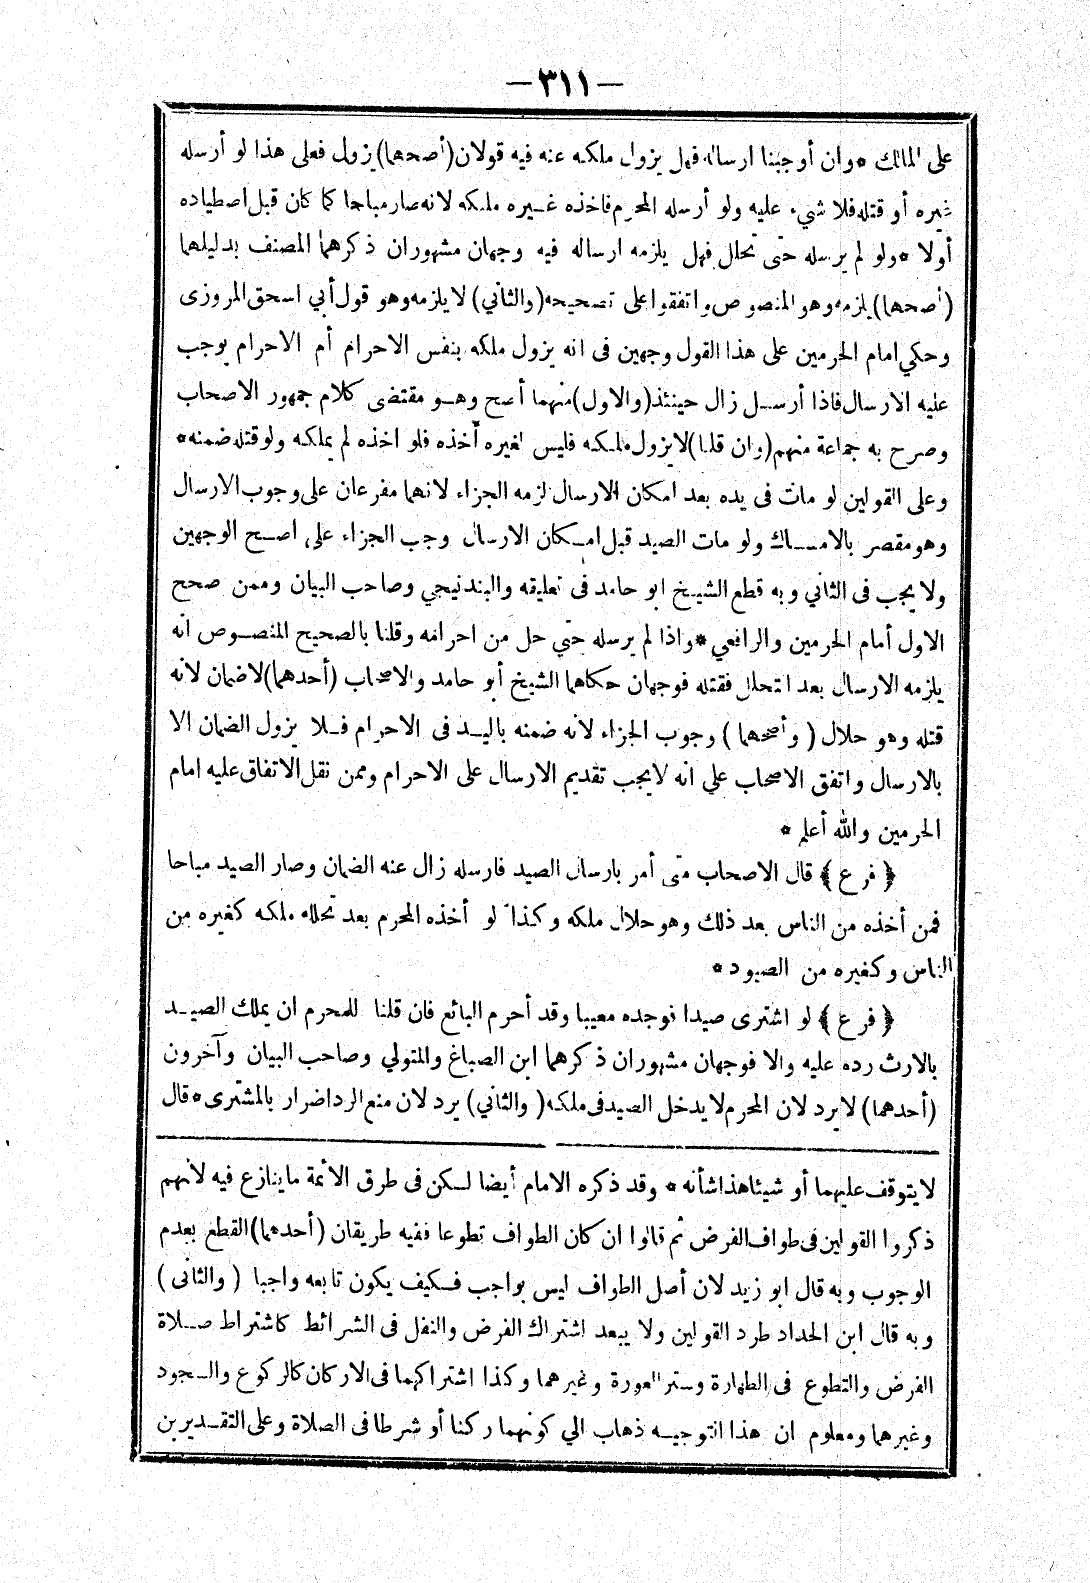 —٣١١—
على المالك * وان أوجبنا ارساله فهل يزول ملكه عنه فيه قولان (أصحهما) يزول فعلى هذا لو أرسله
غيره أو قتله فلا شيء عليه ولو أرسله المحرم فاخذه غيره ملكه لانه صار مباحا كما كان قبل اصطياده
أولا * ولو لم يرسله حتى تحلل فهل يلزمه ارساله فيه وجهان مشهوران ذكرهما المصنف بدليلهما
(أصحهما) يلزمه وهو المنصوص واتفقوا على تصحيحه (والثاني) لا يلزمه وهو قول أبي اسحق المروزى
وحكي امام الحرمين على هذا القول وجهين فى انه يزول ملكه بنفس الاحرام أم الاحرام يوجب
عليه الارسال فاذا أرسل زال حينئذ (والاول) منهما أصح وهو مقتضى كلام جمهور الاصحاب
وصرح به جماعة منهم (وان قلنا) لا يزول ملكه فليس لغيره أخذه فلو اخذه لم يملكه ولو قتله ضمنه *
وعلى القولين لو مات فى يده بعد امكان الارسال لزمه الجزاء لانهما مفرعان على وجوب الارسال
وهو مقصر بالامساك ولو مات الصيد قبل امكان الارسال وجب الجزاء على اصح الوجهين
ولا يجب فى الثاني وبه قطع الشيخ ابو حامد فى تعليقه والبندنيجي وصاحب البيان وممن صحح
الاول أمام الحرمين والرافعي * واذا لم يرسله حتي حل من احرامه وقلنا بالصحيح المنصوص انه
يلزمه الارسال بعد التحلل فقتله فوجهان حكاهما الشيخ أبو حامد والاصحاب (أحدهما) لا ضمان لانه
قتله وهو حلال (وأصحهما) وجوب الجزاء لانه ضمنه باليد فى الاحرام فلا يزول الضمان الا
بالارسال واتفق الاصحاب علي انه لا يجب تقديم الارسال على الاحرام وممن نقل الاتفاق عليه امام
الحرمين والله أعلم *
﴿فرع﴾ قال الاصحاب متى أمر بارسال الصيد فارسله زال عنه الضمان وصار الصيد مباحا
فمن أخذه من الناس بعد ذلك وهو حلال ملكه وكذا لو أخذه المحرم بعد تحلله ملكه كغيره من
الناس وكغيره من الصيود *
﴿فرع﴾ لو اشترى صيدا فوجده معيبا وقد أحرم البائع فان قلنا للمحرم ان يملك الصيد
بالارث رده عليه والا فوجهان مشهوران ذكرهما ابن الصباغ والمتولي وصاحب البيان وآخرون
(أحدهما) لا يرد لان المحرم لا يدخل الصيد فى ملكه (والثاني) يرد لان منع الرد اضرار بالمشترى * قال
لا يتوقف عليهما أو شيئا هذا شأنه * وقد ذكره الامام أيضا لكن فى طرق الأئمة ما ينازع فيه لأنهم
ذكروا القولين فى طواف الفرض ثم قالوا ان كان الطواف تطوعا ففيه طريقان (أحدهما) القطع بعدم
الوجوب وبه قال ابو زيد لان أصل الطواف ليس بواجب فكيف يكون تابعه واجبا (والثانى)
وبه قال ابن الحداد طرد القولين ولا يبعد اشتراك الفرض والنفل فى الشرائط كاشتراط صلاة
الفرض والتطوع فى الطهارة وستر العورة وغيرهما وكذا اشتراكهما فى الاركان كالركوع والسجود
وغيرهما ومعلوم ان هذا التوجيه ذهاب الي كونهما ركنا أو شرطا فى الصلاة وعلى التقديرين